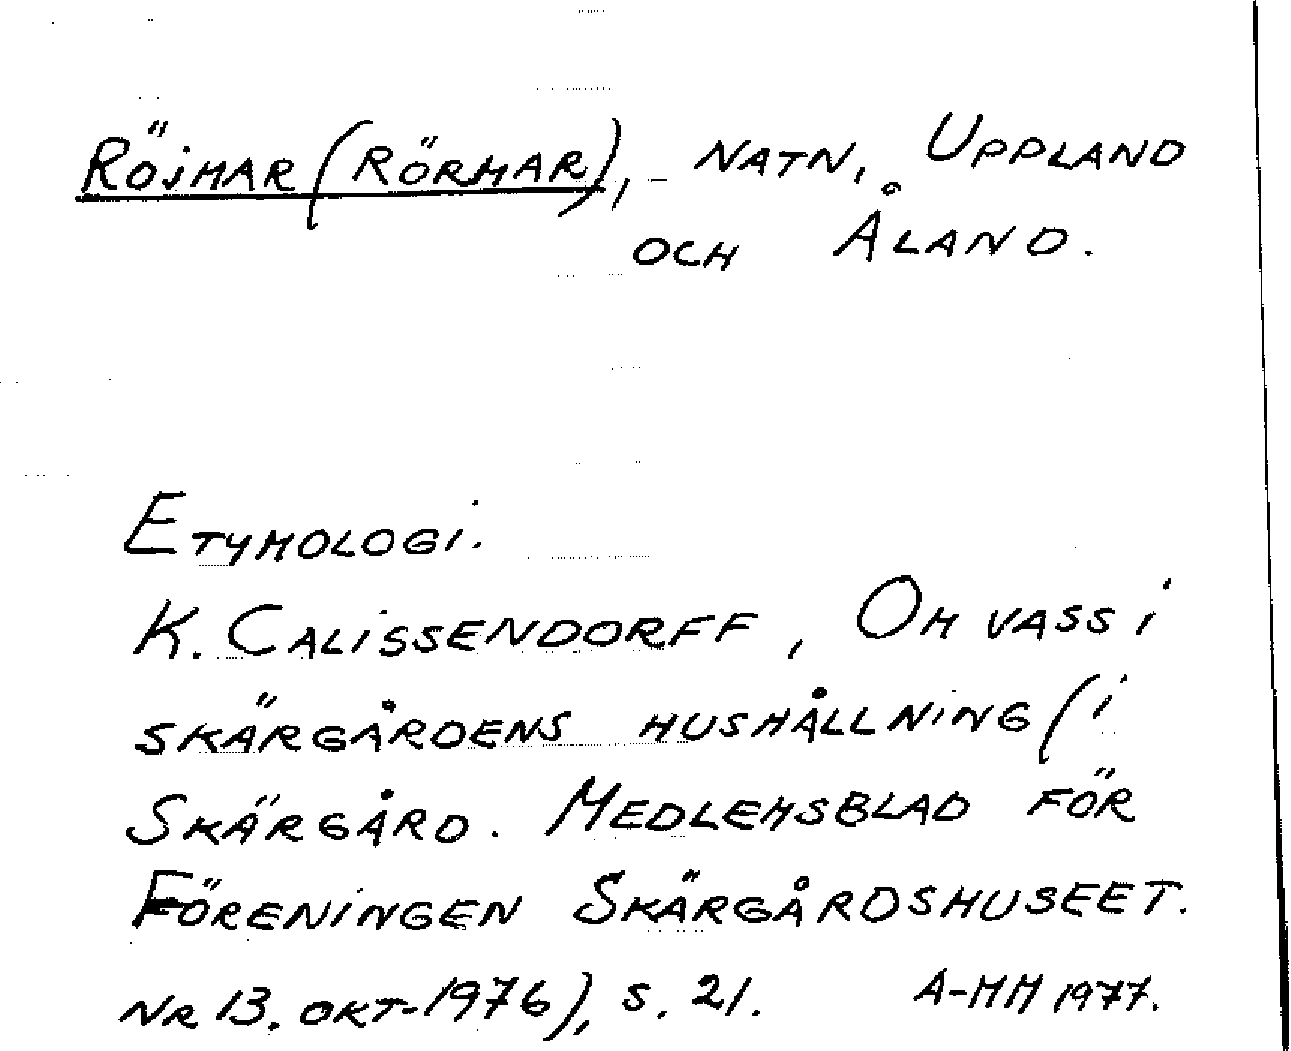 Röjmar (Rörmar), - natn, Uppland
och Åland.
Etymologi.
K. Calissendorff, Om vass i
skärgårdens hushållning (i
Skärgård. Medlemsblad för
Föreningen Skärgårdshuseet.
Nr 13. okt-1976), s. 21. A-MH 1977.